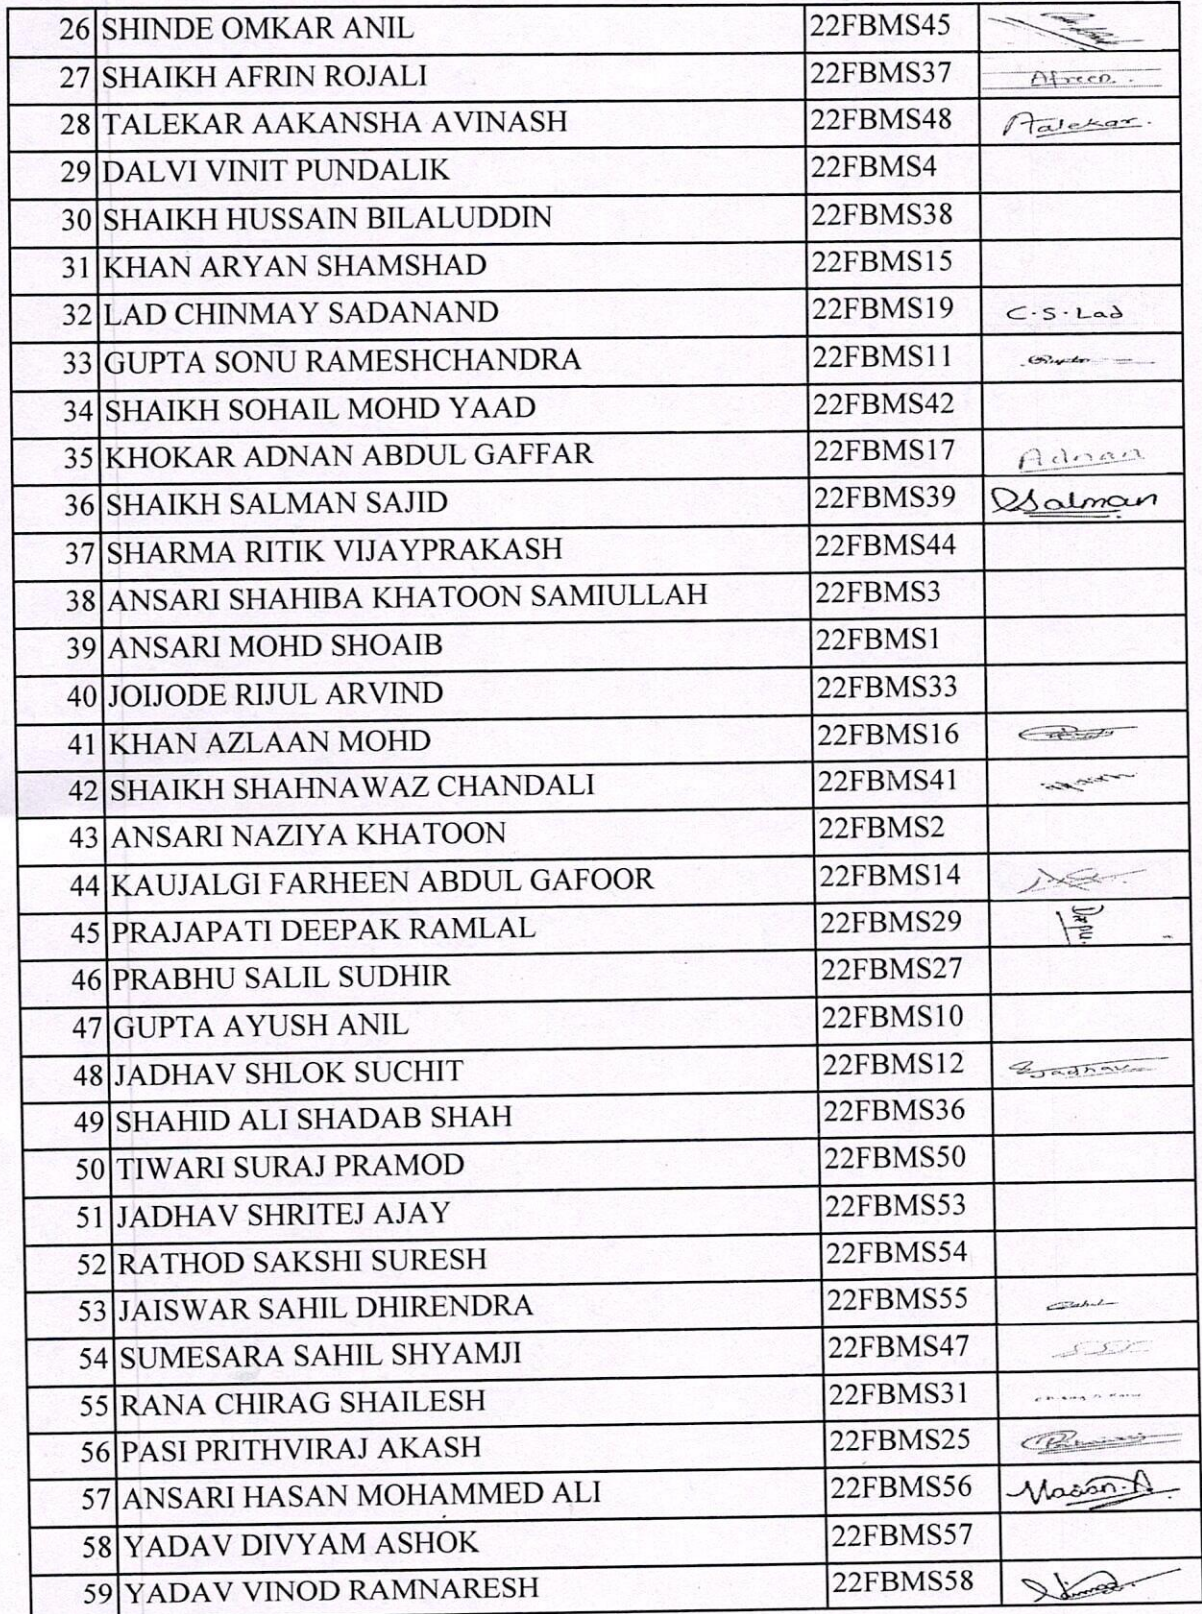 26 SHINDE OMKAR ANIL 22FBMS45
27 SHAIKH AFRIN ROJALI 22FBMS37 Afreen.
28 TALEKAR AAKANSHA AVINASH 22FBMS48 Atalekar.
29 DALVI VINIT PUNDALIK 22FBMS4
30 SHAIKH HUSSAIN BILALUDDIN 22FBMS38
31 KHAN ARYAN SHAMSHAD 22FBMS15
32 LAD CHINMAY SADANAND 22FBMS19 C.S.Lad
33 GUPTA SONU RAMESHCHANDRA 22FBMS11 Gupta
34 SHAIKH SOHAIL MOHD YAAD 22FBMS42
35 KHOKAR ADNAN ABDUL GAFFAR 22FBMS17 Adnan
36 SHAIKH SALMAN SAJID 22FBMS39 Salman
37 SHARMA RITIK VIJAYPRAKASH 22FBMS44
38 ANSARI SHAHIBA KHATOON SAMIULLAH 22FBMS3
39 ANSARI MOHD SHOAIB 22FBMS1
40 JOIJODE RIJUL ARVIND 22FBMS33
41 KHAN AZLAAN MOHD 22FBMS16
42 SHAIKH SHAHNAWAZ CHANDALI 22FBMS41
43 ANSARI NAZIYA KHATOON 22FBMS2
44 KAUJALGI FARHEEN ABDUL GAFOOR 22FBMS14
45 PRAJAPATI DEEPAK RAMLAL 22FBMS29
46 PRABHU SALIL SUDHIR 22FBMS27
47 GUPTA AYUSH ANIL 22FBMS10
48 JADHAV SHLOK SUCHIT 22FBMS12 Jadhav
49 SHAHID ALI SHADAB SHAH 22FBMS36
50 TIWARI SURAJ PRAMOD 22FBMS50
51 JADHAV SHRITEJ AJAY 22FBMS53
52 RATHOD SAKSHI SURESH 22FBMS54
53 JAISWAR SAHIL DHIRENDRA 22FBMS55
54 SUMESARA SAHIL SHYAMJI 22FBMS47
55 RANA CHIRAG SHAILESH 22FBMS31
56 PASI PRITHVIRAJ AKASH 22FBMS25
57 ANSARI HASAN MOHAMMED ALI 22FBMS56 Hasan.A
58 YADAV DIVYAM ASHOK 22FBMS57
59 YADAV VINOD RAMNARESH 22FBMS58